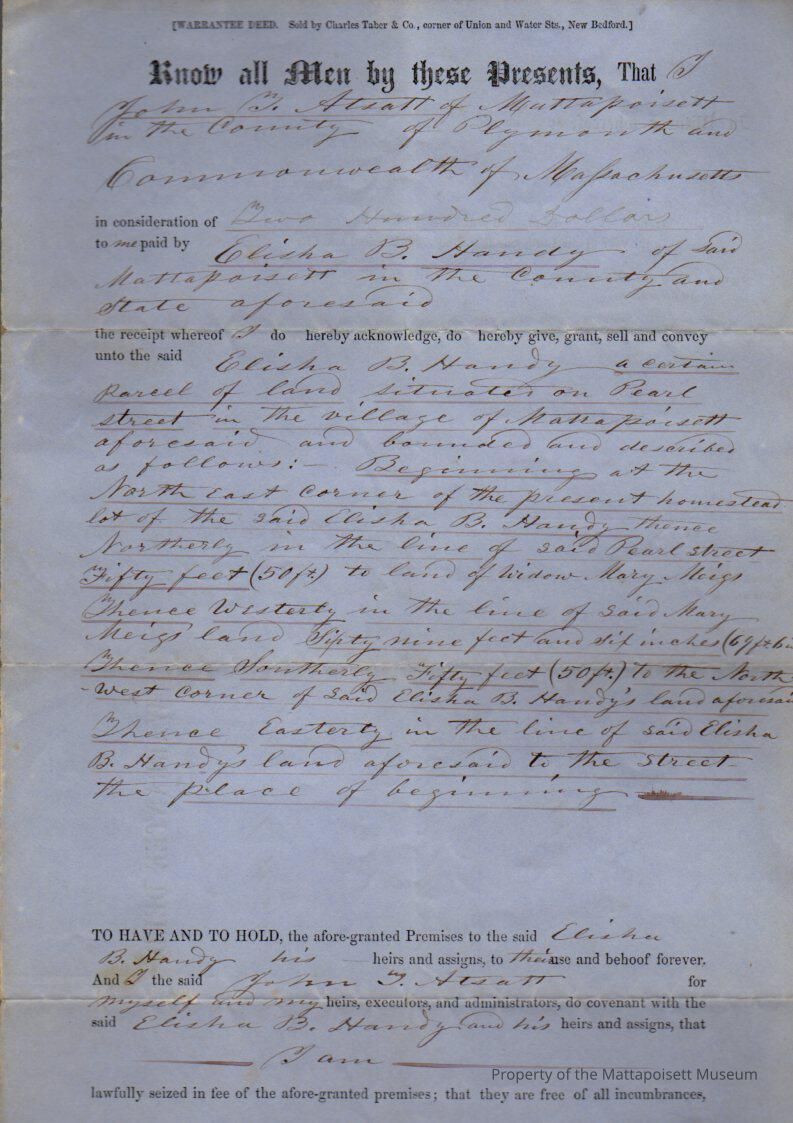 [WARRANTEE DEED. Sold by Charles Taber & Co., corner of Union and Water Sts., New Bedford.]
Know all Men by these Presents, That I
John T. Atsatt of Mattapoisett
in the County of Plymouth and
Commonwealth of Massachusetts
in consideration of Two Hundred Dollars
to me paid by
Elisha B. Handy of said
Mattapoisett in the County and
State aforesaid
the receipt whereof I do hereby acknowledge, do hereby give, grant, sell and convey
unto the said Elisha B. Handy a certain
parcel of land situated on Pearl
street in the village of Mattapoisett
aforesaid and bounded and described
as follows:— Beginning at the
North east corner of the present homestead
lot of the said Elisha B. Handy thence
Northerly in the line of said Pearl street
Fifty feet (50ft.) to land of Widow Mary Meigs
Thence Westerly in the line of said Mary
Meigs land nine feet and six inches (69ft 6in
Thence Southerly Fifty feet (50ft.) to the North
-west corner of said Elisha B. Handy's land aforesaid
Thence Easterly in the line of said Elisha
B. Handy's land aforesaid to the street
the place of beginning
TO HAVE AND TO HOLD, the afore-granted Premises to the said Elisha
B. Handy his heirs and assigns, to their use and behoof forever.
And I the said John T. Atsatt for
myself and my heirs, executors, and administrators, do covenant with the
said Elisha B. Handy and his heirs and assigns, that
I am
Property of the Mattapoisett Museum
lawfully seized in fee of the afore-granted premises; that they are free of all incumbrances,